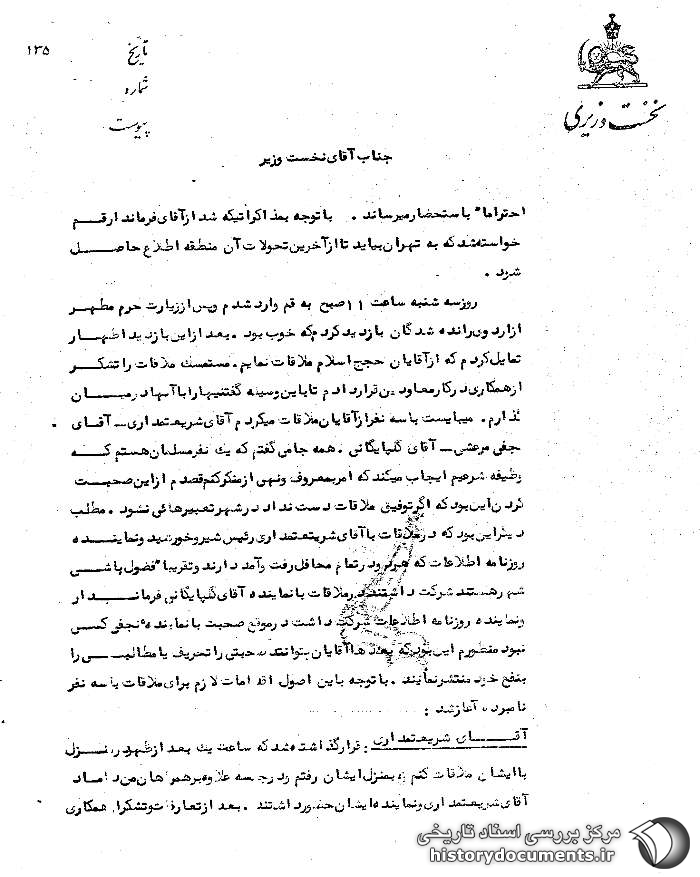 ۱۳۵
تاریخ
شماره
پیوست
نخست وزیری
جناب آقای نخست وزیر
احتراما" باستحضار میرساند . با توجه بمذاکراتیکه شد از آقای فرماندار قم
خواسته شد که به تهران بیاید تا از آخرین تحولات آن منطقه اطلاع حاصل
شود .
روز سه شنبه ساعت ۱۱ صبح به قم وارد شدم و پس از زیارت حرم مطهر
از اردوی رانده شدگان بازدید کردم که خوب بود . بعد از این بازدید اظهار
تمایل کردم که از آقایان حجج اسلام ملاقات نمایم . مستمسک ملاقات را تشکر
از همکاری در کار معاودین قرار دادم تا باین وسیله گفتنیها را با آنها در میان
گذارم . میبایست با سه نفر از آقایان ملاقات میکردم آقای شریعتمداری ــ آقای
نجفی مرعشی ــ آقای گلپایگانی . همه جا می گفتم که یک نفر مسلمان هستم که
وظیفه شرعیم ایجاب میکند که امر بمعروف و نهی از منکر کنم قصدم از این صحبت
کردن این بود که اگر توفیق ملاقات دست نداد در شهر تعبیرهائی نشود . مطلب
دیگر این بود که در ملاقات با آقای شریعتمداری رئیس شیر و خورشید و نماینده
روزنامه اطلاعات که هر دو در تمام محافل رفت و آمد دارند و تقریبا" فضول باشی
شهر هستند شرکت داشتند در ملاقات با نماینده آقای گلپایگانی فرماندار
و نماینده روزنامه اطلاعات شرکت داشت در موقع صحبت با نماینده نجفی کسی
نبود منظورم این بود که بعدها آقایان بتوانند صحبتی را تحریف یا مطالبی را
بنفع خود منتشر نمایند . با توجه باین اصول اقدامات لازم برای ملاقات با سه نفر
نامبرده آغاز شد :
آقای شریعتمداری : قرار گذاشته شد که ساعت یک بعد از ظهر در منزل
با ایشان ملاقات کنم به منزل ایشان رفتم در جلسه علاوه بر همراهان من داماد
آقای شریعتمداری و نماینده ایشان حضور داشتند . بعد از تعارفات و تشکر از همکاری
مرکز بررسی اسناد تاریخی
historydocuments.ir